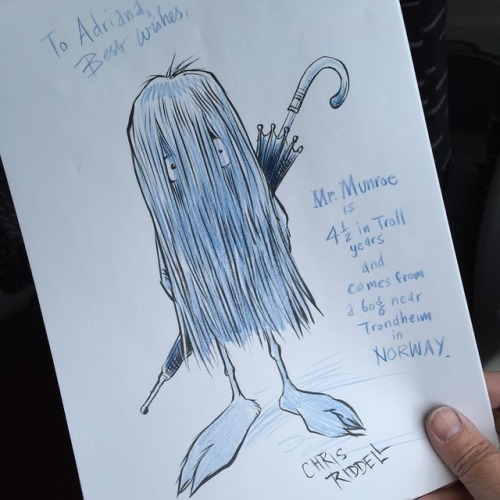 To Adriana,
Best wishes,
Mr. Munroe
is
4½ in Troll
years
and
comes from
a bog near
Trondheim
in
NORWAY.
CHRIS
RIDDELL